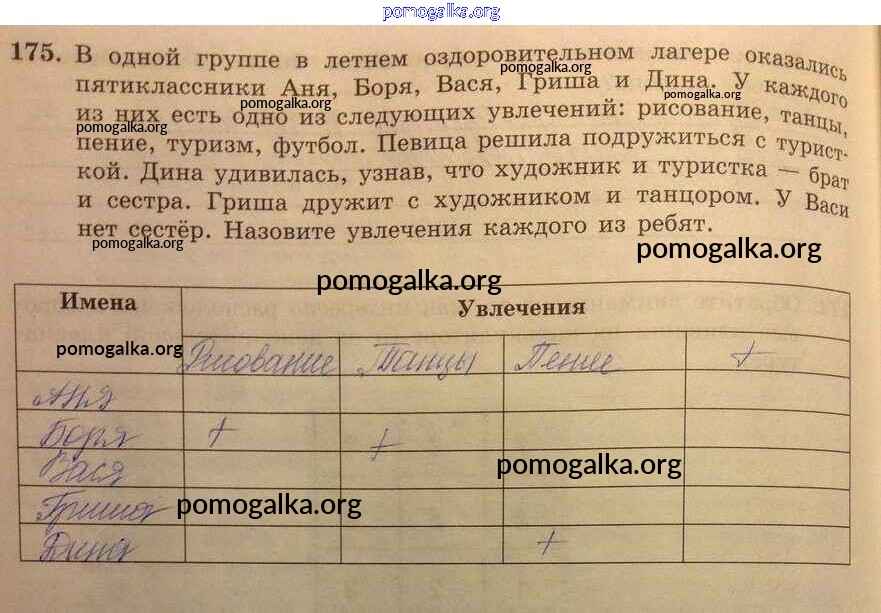 pomogalka.org
175. В одной группе в летнем оздоровительном лагере оказались
pomogalka.org
пятиклассники Аня, Боря, Вася, Гриша и Дина. У каждого
pomogalka.org
pomogalka.org
из них есть одно из следующих увлечений: рисование, танцы,
pomogalka.org
пение, туризм, футбол. Певица решила подружиться с турист-
кой. Дина удивилась, узнав, что художник и туристка — брат
и сестра. Гриша дружит с художником и танцором. У Васи
нет сестёр. Назовите увлечения каждого из ребят.
pomogalka.org
pomogalka.org
pomogalka.org
Имена Увлечения
pomogalka.org
Рисование Танцы Пение +
Аня
Боря +
+
Вася
pomogalka.org
Гриша
pomogalka.org
Дина +